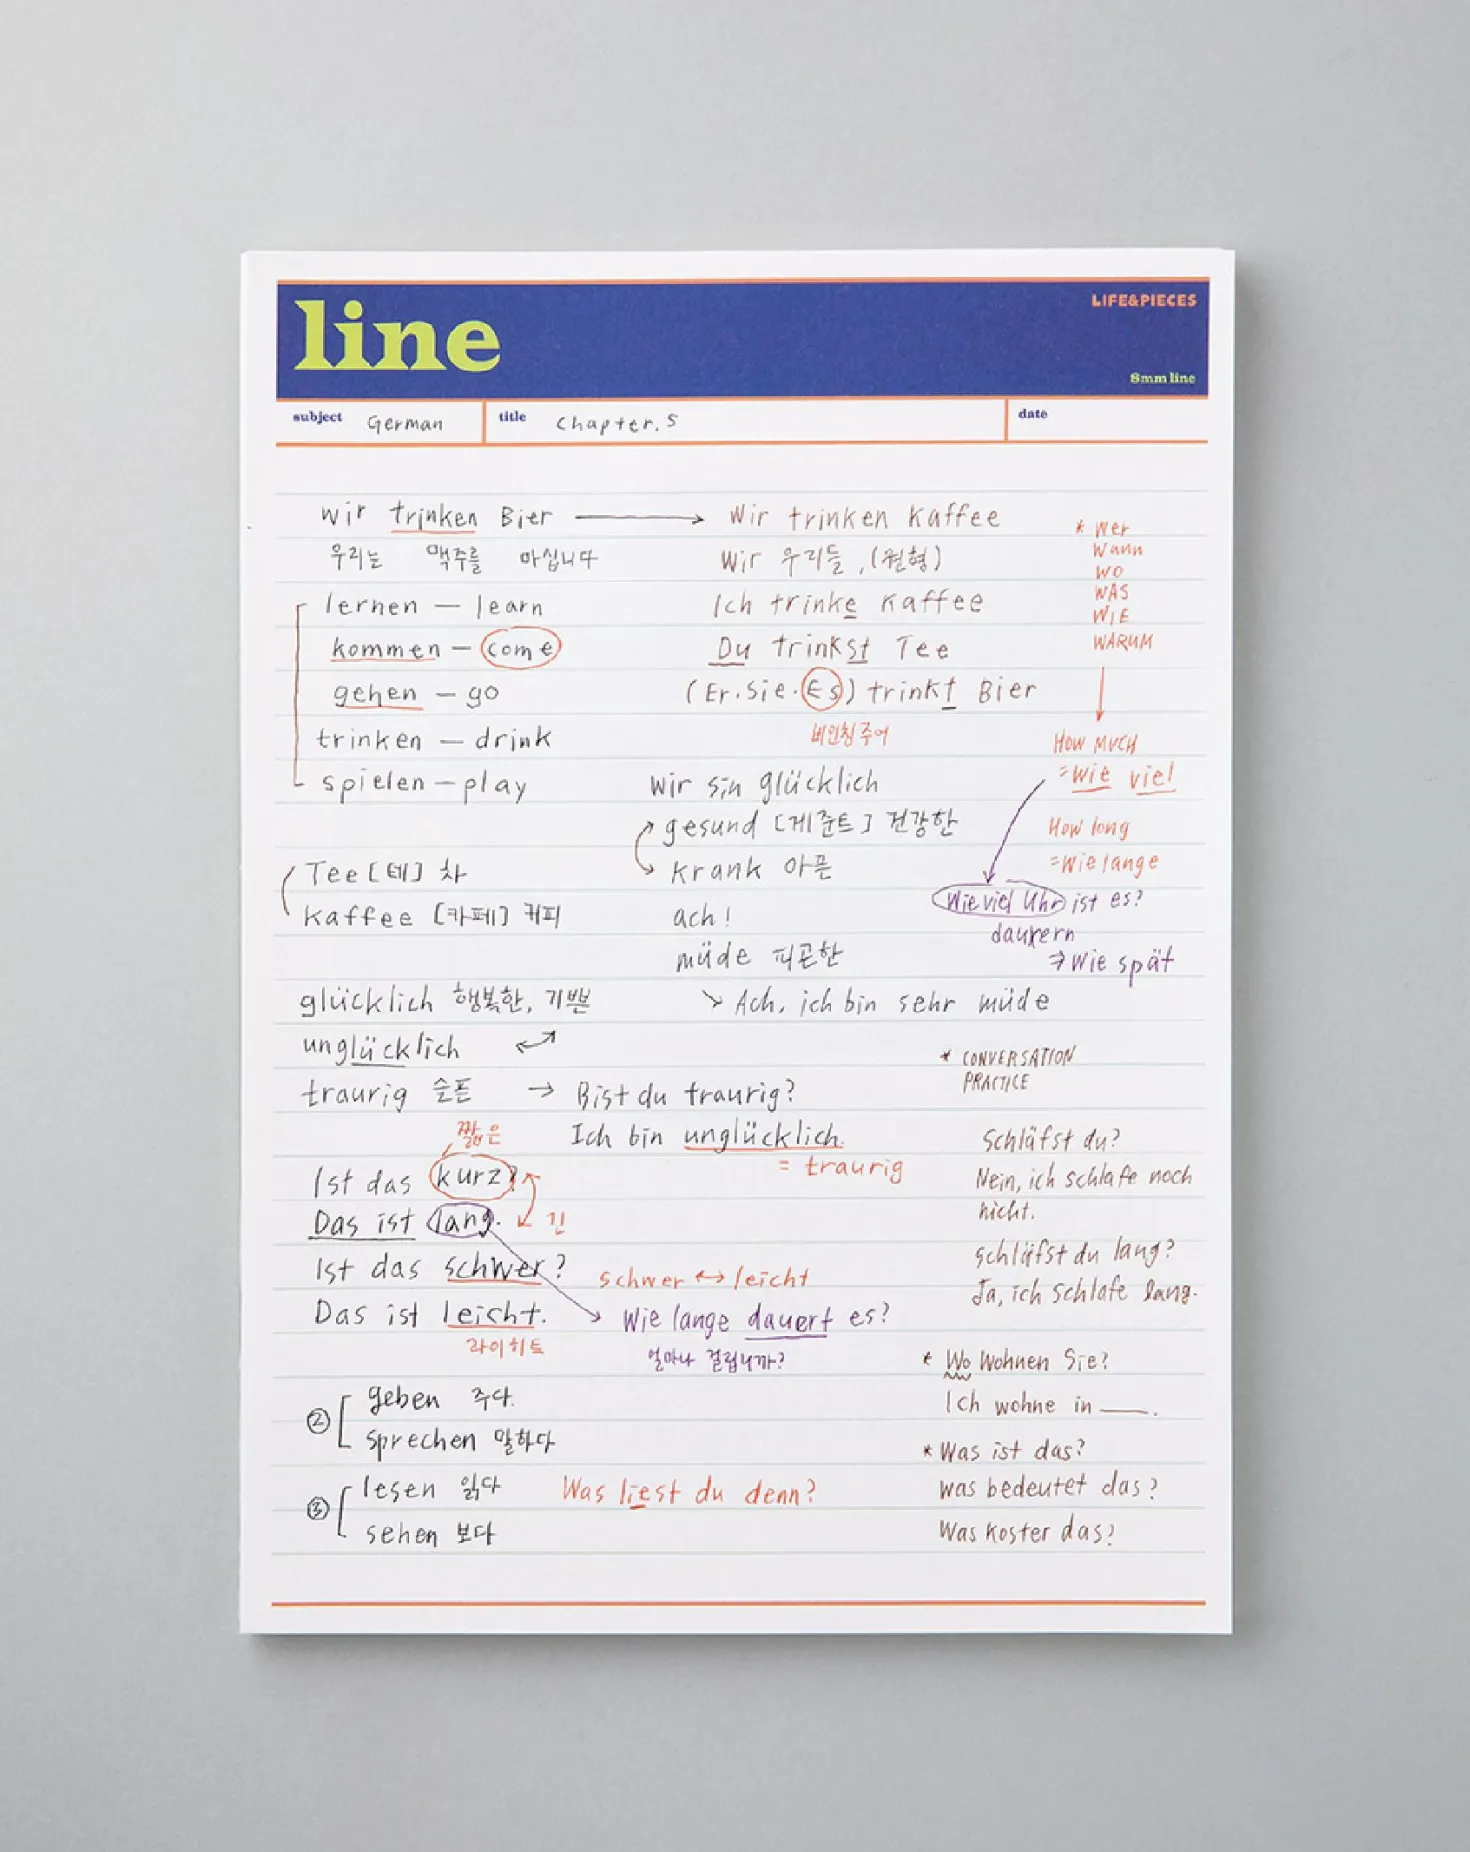 line
LIFE&PIECES
8mm line
subject German
title Chapter. 5
date
Wir trinken Bier → Wir trinken Kaffee
우리는 맥주를 마십니다
Wir 우리들, (원형)
lernen — learn
kommen — come
gehen — go
trinken — drink
spielen — play
Ich trinke Kaffee
Du trinkst Tee
(Er. Sie. Es) trinkt Bier
비인칭주어
* Wer
Wann
WO
WAS
WIE
WARUM
HOW MUCH
= Wie viel
How long
= Wie lange
Wie viel Uhr ist es?
dauern
⇒ Wie spät
Wir sin glücklich
gesund [게준트] 건강한
krank 아픈
ach!
müde 피곤한
↘ Ach, ich bin sehr müde
Tee [테] 차
Kaffee [카페] 커피
glücklich 행복한, 기쁜
unglücklich ↔
traurig 슬픈 → Bist du traurig?
Ich bin unglücklich.
= traurig
짧은
Ist das kurz?
Das ist lang.
긴
Ist das schwer?
schwer ↔ leicht
Das ist leicht.
라이히트
Wie lange dauert es?
얼마나 걸립니까?
② geben 주다.
sprechen 말하다
③ lesen 읽다
sehen 보다
Was liest du denn?
* CONVERSATION
PRACTICE
Schläfst du?
Nein, ich schlafe noch
nicht.
Schläfst du lang?
Ja, ich schlafe lang.
* Wo wohnen Sie?
Ich wohne in ____.
* Was ist das?
was bedeutet das?
Was koster das?